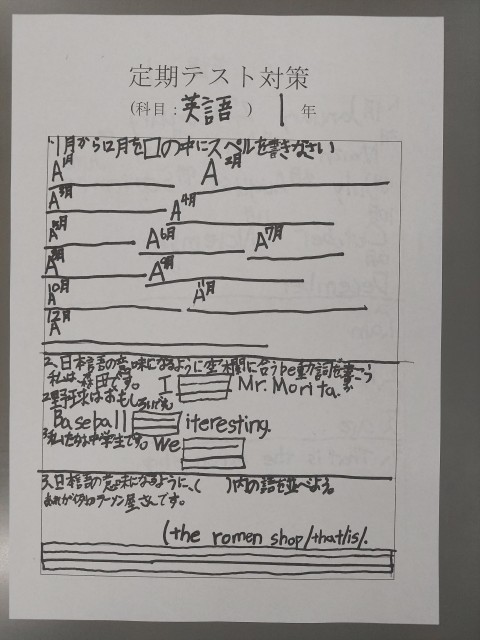 定期テスト対策
(科目：英語 ) 1 年
1月から12月を□の中にスペルを書きなさい
1月 A 2月 A
3月 A 4月 A
5月 A 6月 A 7月 A
8月 A 9月 A
10月 A 11月 A
12月 A
2、日本語の意味になるように空欄に合うbe動詞を書こう
私は、森田です。 I Mr. Morita.
2野球はおもしろいです。
Baseball iteresting.
3私たちは中学生です。We
3、日本語の意味になるように、( )内の語を並べよ。
あれが ラーメン屋さんです。
(the romen shop/that/is/.